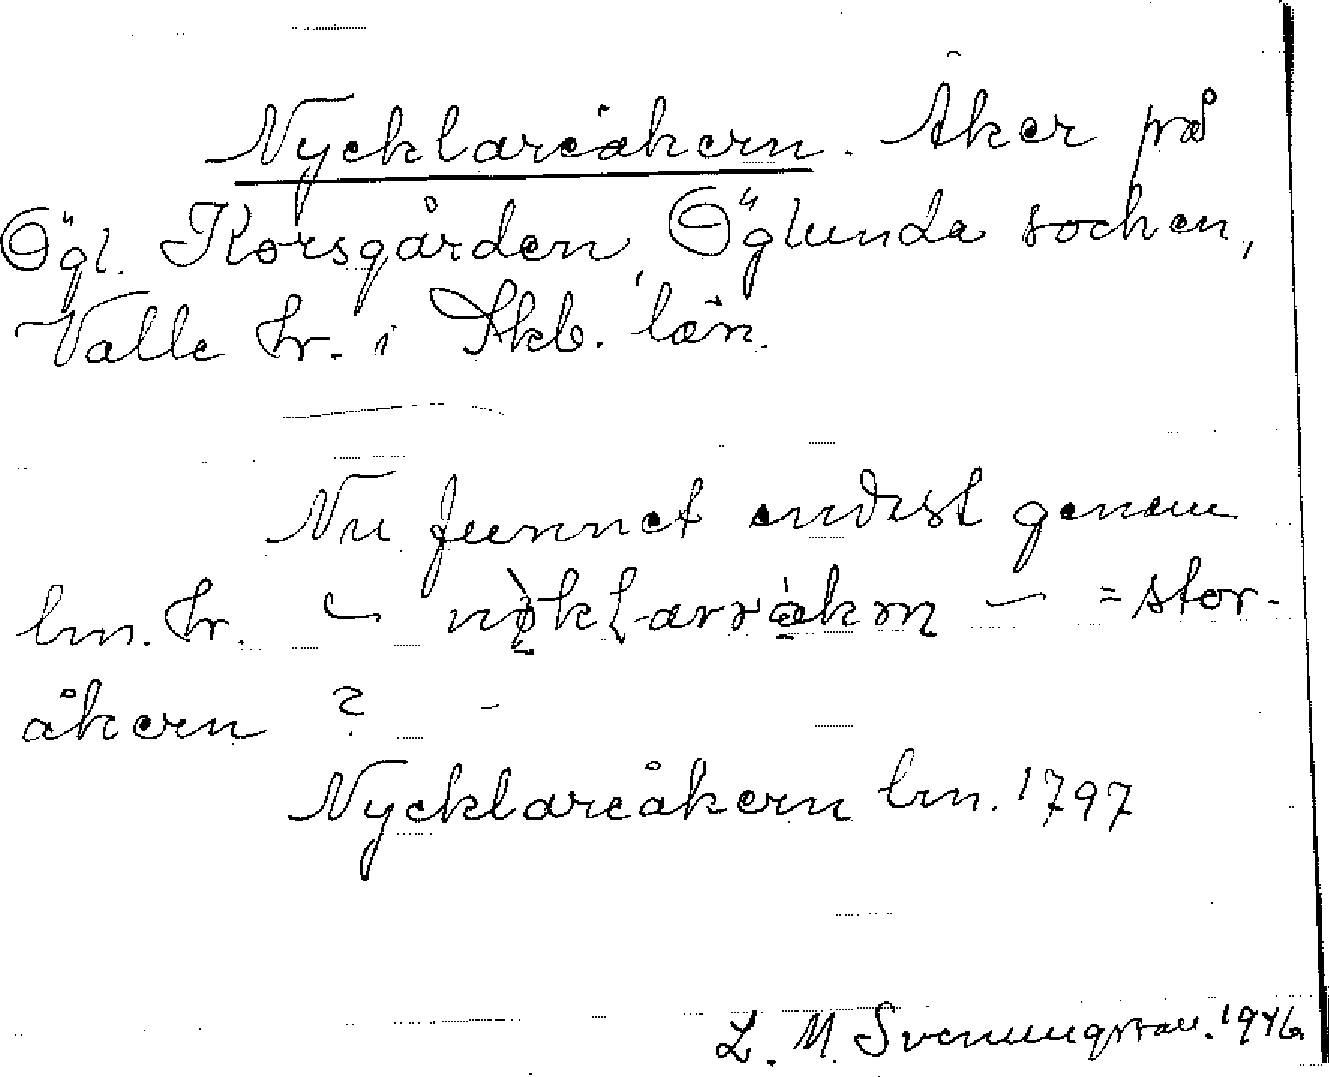 Nycklareåkern. Åker på
Ögl. Korsgården, Öglunda socken,
Valle hr. i Skb. län.
Nu funnet endast genom
lm. hr. – nøklarråkrn – = stor-
åkern ? –
Nycklareåkern lm. 1797
L. M. Svenungsson. 1946